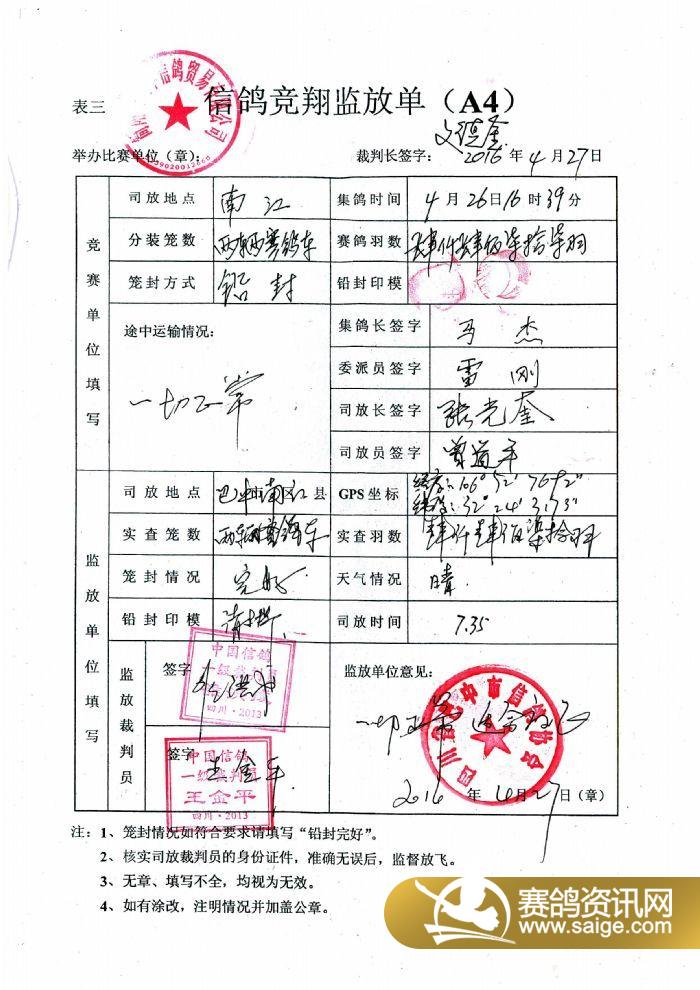 表三
信鸽竞翔监放单（A4）
举办比赛单位（章）：
裁判长签字：
2016年4月27日
竞赛单位填写
司放地点 南江 集鸽时间 4月26日16时39分
分装笼数 两辆赛鸽车 赛鸽羽数 肆仟肆佰柒拾柒羽
笼封方式 铅封 铅封印模
途中运输情况：
一切正常
集鸽长签字 马杰
委派员签字 雷刚
司放长签字 张光奎
司放员签字 曾道平
监放单位填写
司放地点 巴中市南江县 GPS坐标
实查笼数 两辆赛鸽车 实查羽数
笼封情况 完好 天气情况 晴
铅封印模 清晰 司放时间 7.35
监放裁判员
签字
中国信鸽
一级裁判员
四川·2013
签字 王金平
中国信鸽
一级裁判员
王金平
四川·2013
监放单位意见：
一切正常
四川省巴中市信鸽协会
2016年4月27日（章）
注：1、笼封情况如符合要求请填写“铅封完好”。
2、核实司放裁判员的身份证件，准确无误后，监督放飞。
3、无章、填写不全，均视为无效。
4、如有涂改，注明情况并加盖公章。
赛鸽资讯网
www.saige.com